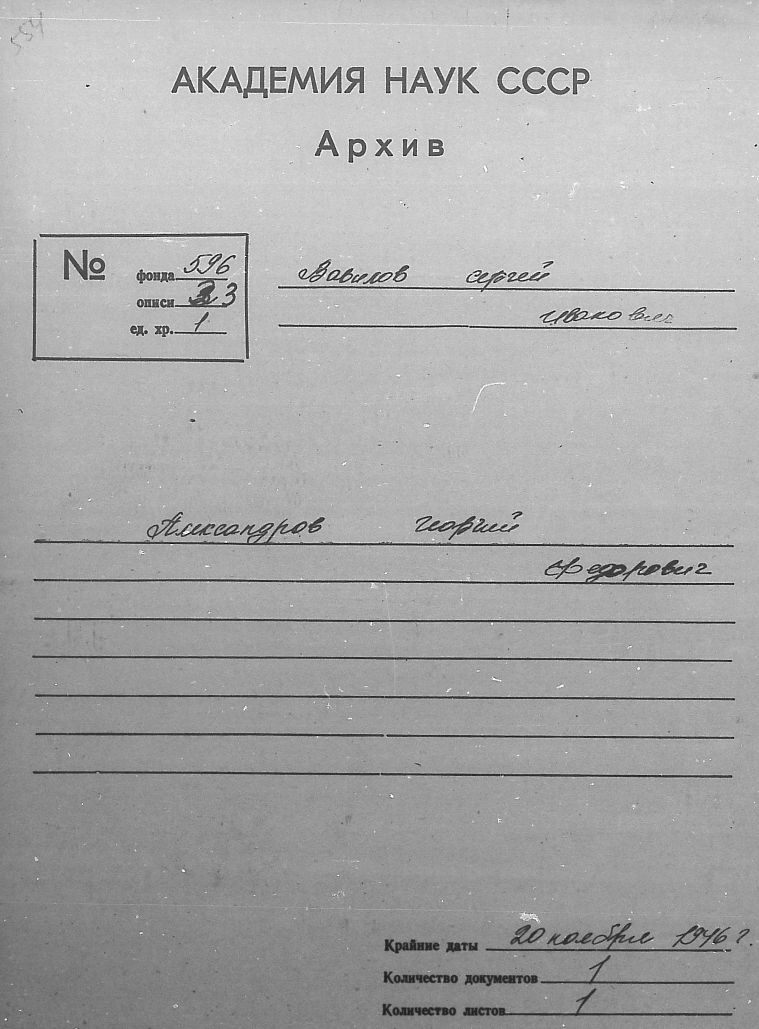 554
АКАДЕМИЯ НАУК СССР
Архив
№ фонда 596
описи 3
ед. хр. 1
Вавилов Сергей
Иванович
Александров Георгий
Федорович
Крайние даты 20 ноября 1946 г.
Количество документов 1
Количество листов 1